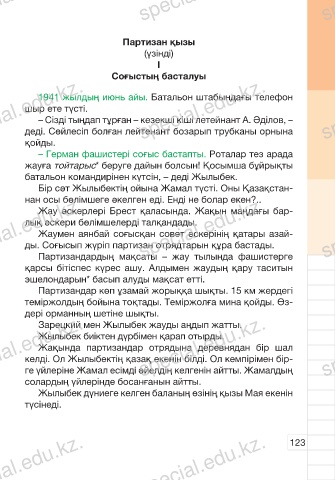 Партизан қызы
(үзінді)
I
Соғыстың басталуы
1941 жылдың июнь айы. Батальон штабындағы телефон
шыр ете түсті.
– Сізді тыңдап тұрған – кезекші кіші лейтенант А. Әділов, –
деді. Сөйлесіп болған лейтенант бозарып трубканы орнына
қойды.
– Герман фашистері соғыс бастапты. Роталар тез арада
жауға тойтарыс* беруге дайын болсын! Қосымша бұйрықты
батальон командирінен күтсін, – деді Жылыбек.
Бір сәт Жылыбектің ойына Жамал түсті. Оны Қазақстан-
нан осы бөлімшеге әкелген еді. Енді не болар екен?..
Жау әскерлері Брест қаласында. Жақын маңдағы бар-
лық әскери бөлімшелерді талқандады.
Жаумен аянбай соғысқан совет әскерінің қатары азай-
ды. Соғысып жүріп партизан отрядтарын құра бастады.
Партизандардың мақсаты – жау тылында фашистерге
қарсы бітіспес күрес ашу. Алдымен жаудың қару таситын
эшелондарын* басып алуды мақсат етті.
Партизандар көп ұзамай жорыққа шықты. 15 км жердегі
теміржолдың бойына тоқтады. Теміржолға мина қойды. Өз-
дері орманның шетіне шықты.
Зарецкий мен Жылыбек жауды аңдып жатты.
Жылыбек биіктен дүрбімен қарап отырды.
Жақында партизандар отрядына деревнядан бір шал
келді. Ол Жылыбектің қазақ екенін білді. Ол кемпірімен бір-
ге үйлеріне Жамал есімді әйелдің келгенін айтты. Жамалдың
солардың үйлерінде босанғанын айтты.
Жылыбек дүниеге келген баланың өзінің қызы Мая екенін
түсінеді.
123
special.edu.kz.